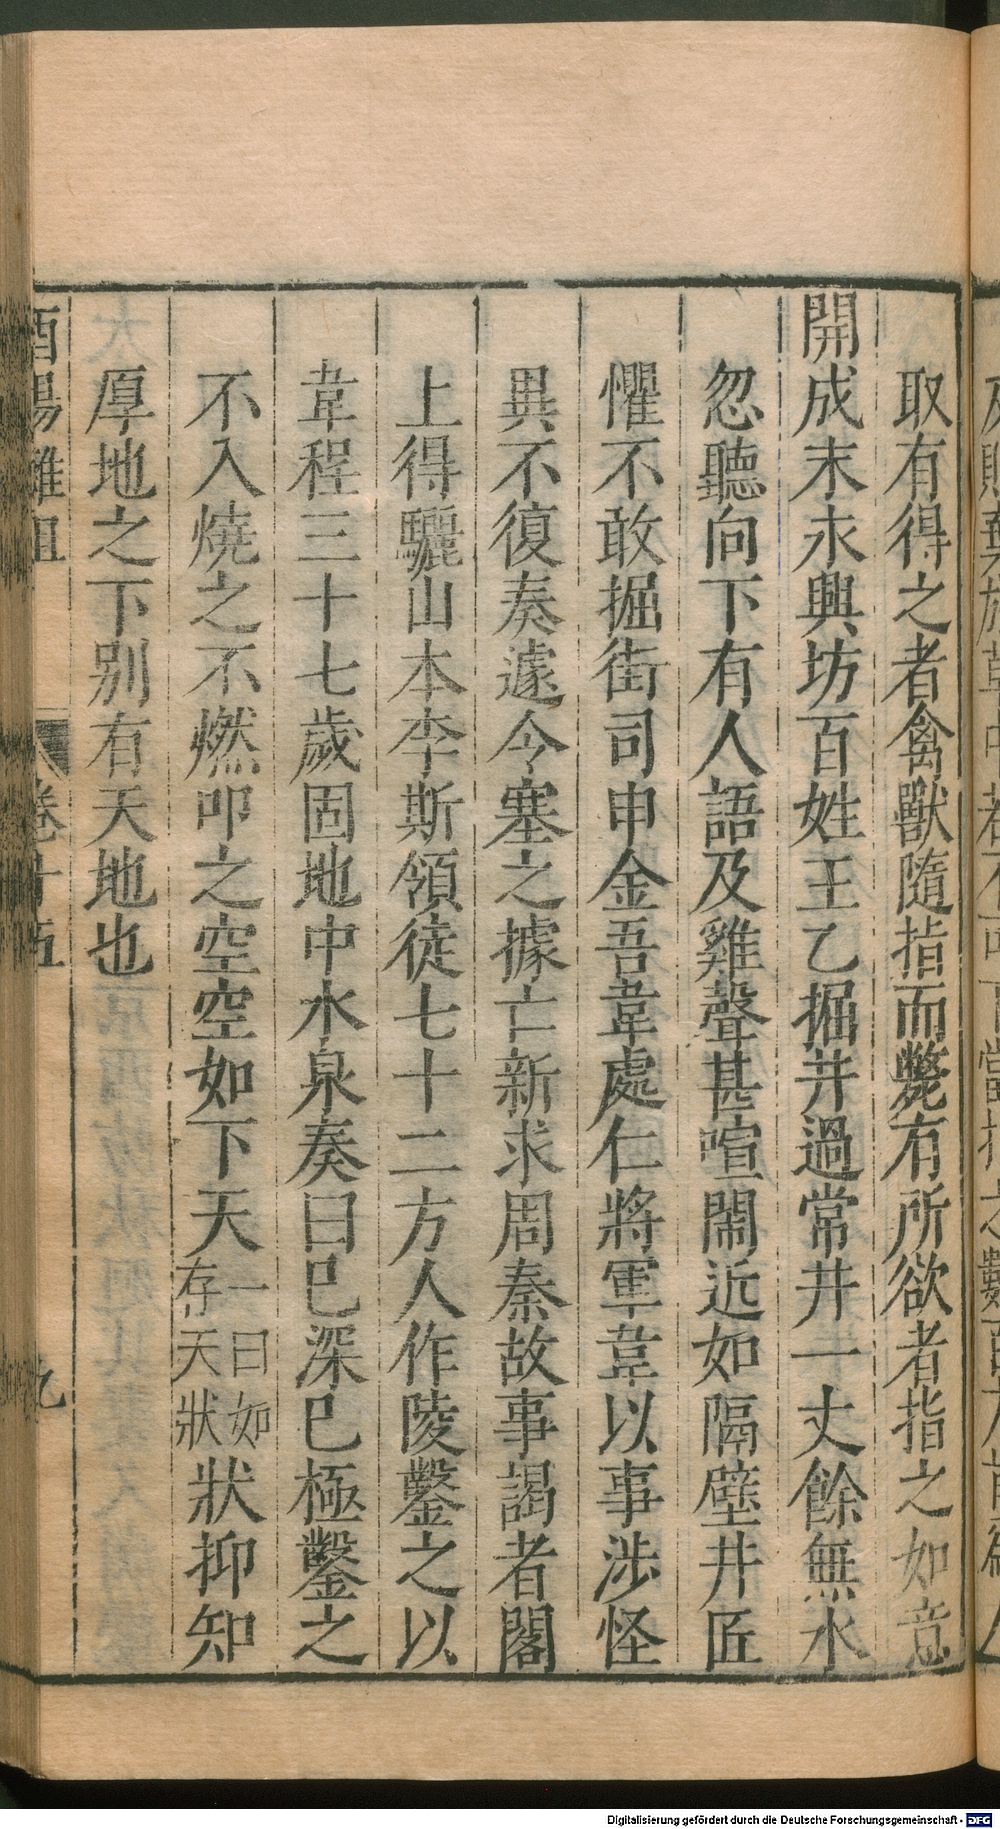 取有得之者禽獸隨指而斃有所欲者指之如意
開成末永興坊百姓王乙掘井過常井一丈餘無水
忽聽向下有人語及雞聲甚喧鬧近如隔壁井匠
懼不敢掘街司申金吾韋處仁將軍韋以事涉怪
異不復奏遽令塞之據亡新求周秦故事謁者閣
上得驪山本李斯領徒七十二方人作陵鑿之以
韋程三十七歲固地中水泉奏曰已深已極鑿之
不入燒之不燃叩之空空如下天一曰如存天狀狀抑知
厚地之下別有天地也
酉陽雜俎 卷十五 九
Digitalisierung gefördert durch die Deutsche Forschungsgemeinschaft - DFG